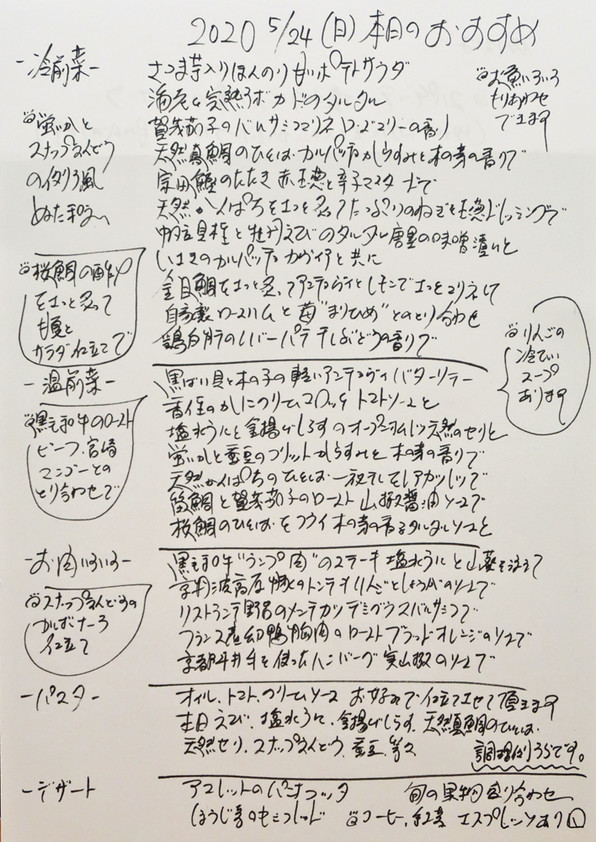 2020 5/24 (日) 本日のおすすめ
-冷前菜-
さつま芋入りほんのり甘いポテトサラダ
海老と完熟アボカドのタルタル
賀茂茄子のバルサミコマリネ ローズマリーの香り
天然真鯛のひらめ カルパッチョ からすみと木の芽の香りで
のたたき 赤玉葱と辛子マスタードで
天然かんぱちをさっと炙ってたっぷりのねぎと玉葱ドレッシングで
帆立貝柱と牡丹えびのタルタル
いさきのカルパッチョ カヴィアと共に
金目鯛をさっと炙り アンディーヴとレモンでさっとマリネして
自家製ロースハムと苺"まりひめ"とのとり合わせ
鶏白肝のレバーパテ 干しぶどうの香りで
お魚いろいろ
もりあわせ
できます
蛍いかと
スナップえんどう
のイタリア風
ぬた和え
桜鯛の
をさっと炙って
サラダ仕立てで
りんごの
冷たい
スープ
あります
-温前菜-
黒ばい貝と木の子の軽いアンチョヴィバターソテー
香住のかにクリームコロッケ トマトソースと
塩水うにと釜揚げしらすのオープンオムレツ 天然のセリと
蛍いかと蚕豆のフリット からすみと木の芽の香りで
天然かんぱちの
鯛と賀茂茄子のロースト 山椒醤油ソースで
桜鯛の フライ 木の芽の香るタルタルソースと
黒毛和牛のロースト
ビーフ、宮崎
マンゴーとの
とり合わせで
-お肉いろいろ-
黒毛和牛"ランプ肉"のステーキ 塩水うにと山葵を添えて
京丹波高原豚のトンテキ りんごとしょうがのソースで
リストランテ野呂のメンチカツ デミグラスバルサミコで
フランス産幼鴨胸肉のロースト ブラッドオレンジのソースで
京都 牛を使ったハンバーグ 実山椒のソースで
スナップえんどうの
かるぼなーら
仕立て
-パスタ-
オイル、トマト、クリームソース お好みで仕立てさせて頂きます
本日 えび、塩水うに、釜揚げしらす、天然真鯛の
天然セリ、スナップえんどう、蚕豆、等々
調理はいろいろです。
-デザート
アマレットのパンナコッタ 旬の果物盛り合わせ
ほうじ茶のセミフレッド コーヒー、紅茶 エスプレッソあり